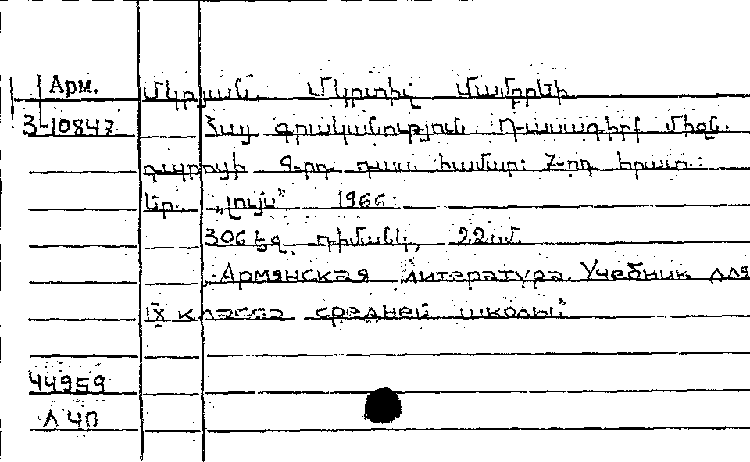 Арм. Մկրյան Մկրտիչ Մամբրեի
3-10847 Հայ գրականություն Դասագիրք միջն.
դպրոցի 9-րդ դաս. համար: 7-րդ հրատ.:
Եր. „Լույս” 1966:
306 էջ. դիմանկ, 22սմ
„Армянская литература. Учебник для
IX класса средней школы”
44959
Л 40